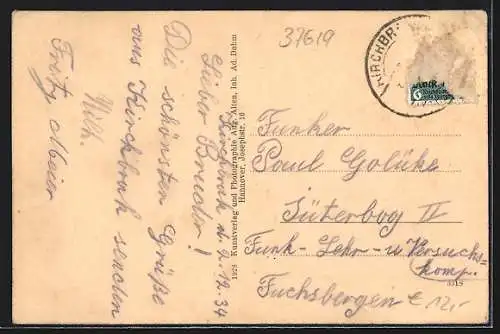 37619
KIRCHBR
Kirchbrak d. 9.12.34
Lieber Bruder!
Die schönsten Grüße
aus Kirchbrak senden
Wilh.
Fritz Meier
1978 Kunstverlag und Photographie Aug. Alten, Inh. Ad. Dahm
Hannover, Josephstr. 10
Funker
Paul Golüke
Jüterbog II
Funk-Lehr-u Versuchs-
komp.
3319
Fuchsbergen
€ 12,-